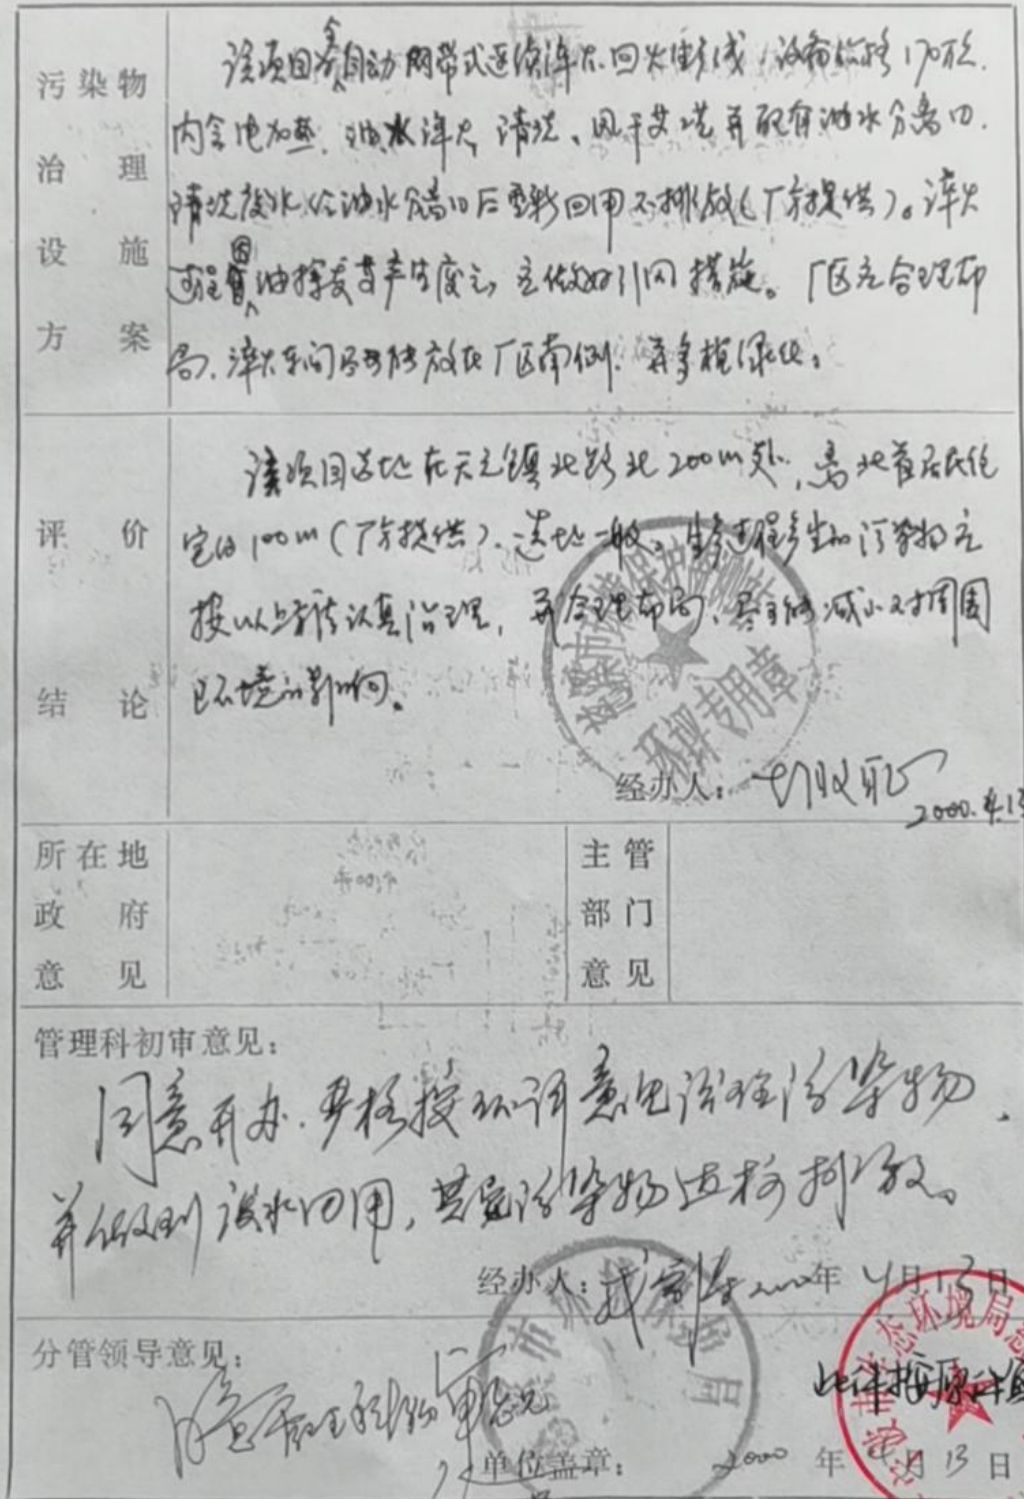 污染物治理设施方案
该项目为全自动网带式连续淬火回火生产线，设备价格170万元，
内含电加热、油水淬火、清洗、风干等，并配有油水分离
清洗废水经油水分离后重新回用不排放（厂方提供）。淬火
过程因油挥发等产生废气，应做好引风措施。厂区应合理布
局，淬火车间尽可能放在厂区南侧，并多植绿化。
评价结论
该项目选址在天元镇北路北200m处，离北首居民住
宅约100m（厂方提供），选址一般。生产过程产生的污染物应
按以上方法认真治理，并合理布局，尽可能减小对周围
环境的影响。
环评专用章
经办人：
2000.4.13
所在地政府意见
主管部门意见
管理科初审意见：
同意开办，严格按环评意见治理污染物，
并做到废水回用，其它污染物达标排放。
经办人： 2000年4月13日
分管领导意见：
同意管理科初审意见
此件按原件
单位盖章： 2000年4月13日